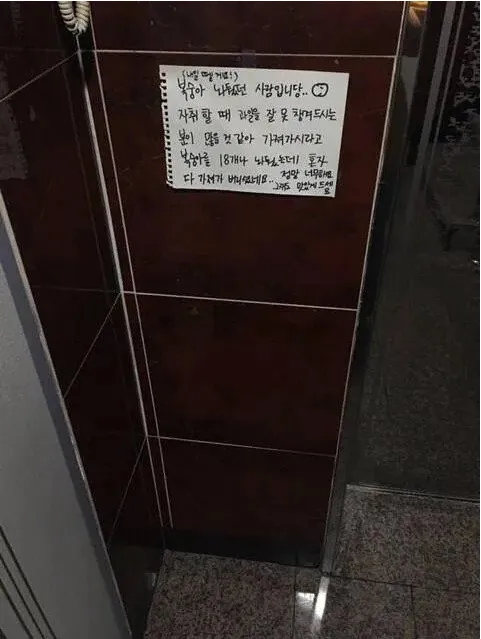 (내일 뗄 거임!)
복숭아 놔뒀던 사람입니당..
자취할 때 과일을 잘 못 챙겨드시는
분이 많을 것 같아 가져가시라고
복숭아를 18개나 놔뒀는데 혼자
다 가져가 버리셨네요.. 정말 너무해요
..그래도 맛있게 드세요